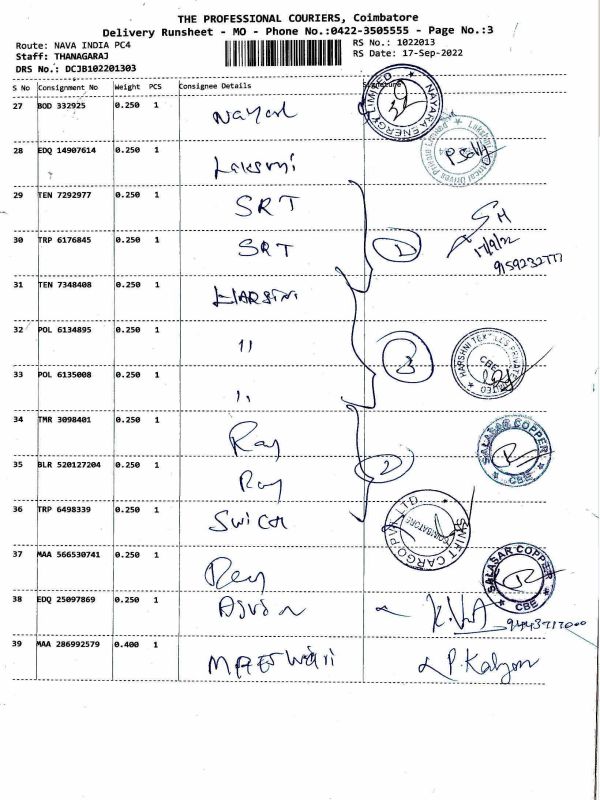 THE PROFESSIONAL COURIERS, Coimbatore
Delivery Runsheet - MO - Phone No.:0422-3505555 - Page No.:3
Route: NAVA INDIA PC4
RS No.: 1022013
Staff: THANAGARAJ
RS Date: 17-Sep-2022
DRS No.: DCJB102201303
S No Consignment No Weight PCS Consignee Details Signature
27 BOD 332925 0.250 1
NAYARA ENERGY LIMITED
28 EDQ 14907614 0.250 1 Lakshmi
29 TEN 7292977 0.250 1 SRT
30 TRP 6176845 0.250 1 SRT 1 SH
17/9/22
9159232777
31 TEN 7348408 0.250 1 HARSINI
32 POL 6134895 0.250 1 11 3
HARSHNI TEXTILES PRIVATE LIMITED CBE
33 POL 6135008 0.250 1 11
34 TMR 3098401 0.250 1 Ray
SALASAR COPPER CBE
35 BLR 520127204 0.250 1 Ray 2
36 TRP 6498339 0.250 1
SWIFT CARGO PVT LTD COIMBATORE
37 MAA 566530741 0.250 1 Ray
SALASAR COPPER CBE
38 EDQ 25097869 0.250 1
39 MAA 286992579 0.400 1 MAESWARI P. Kalyan